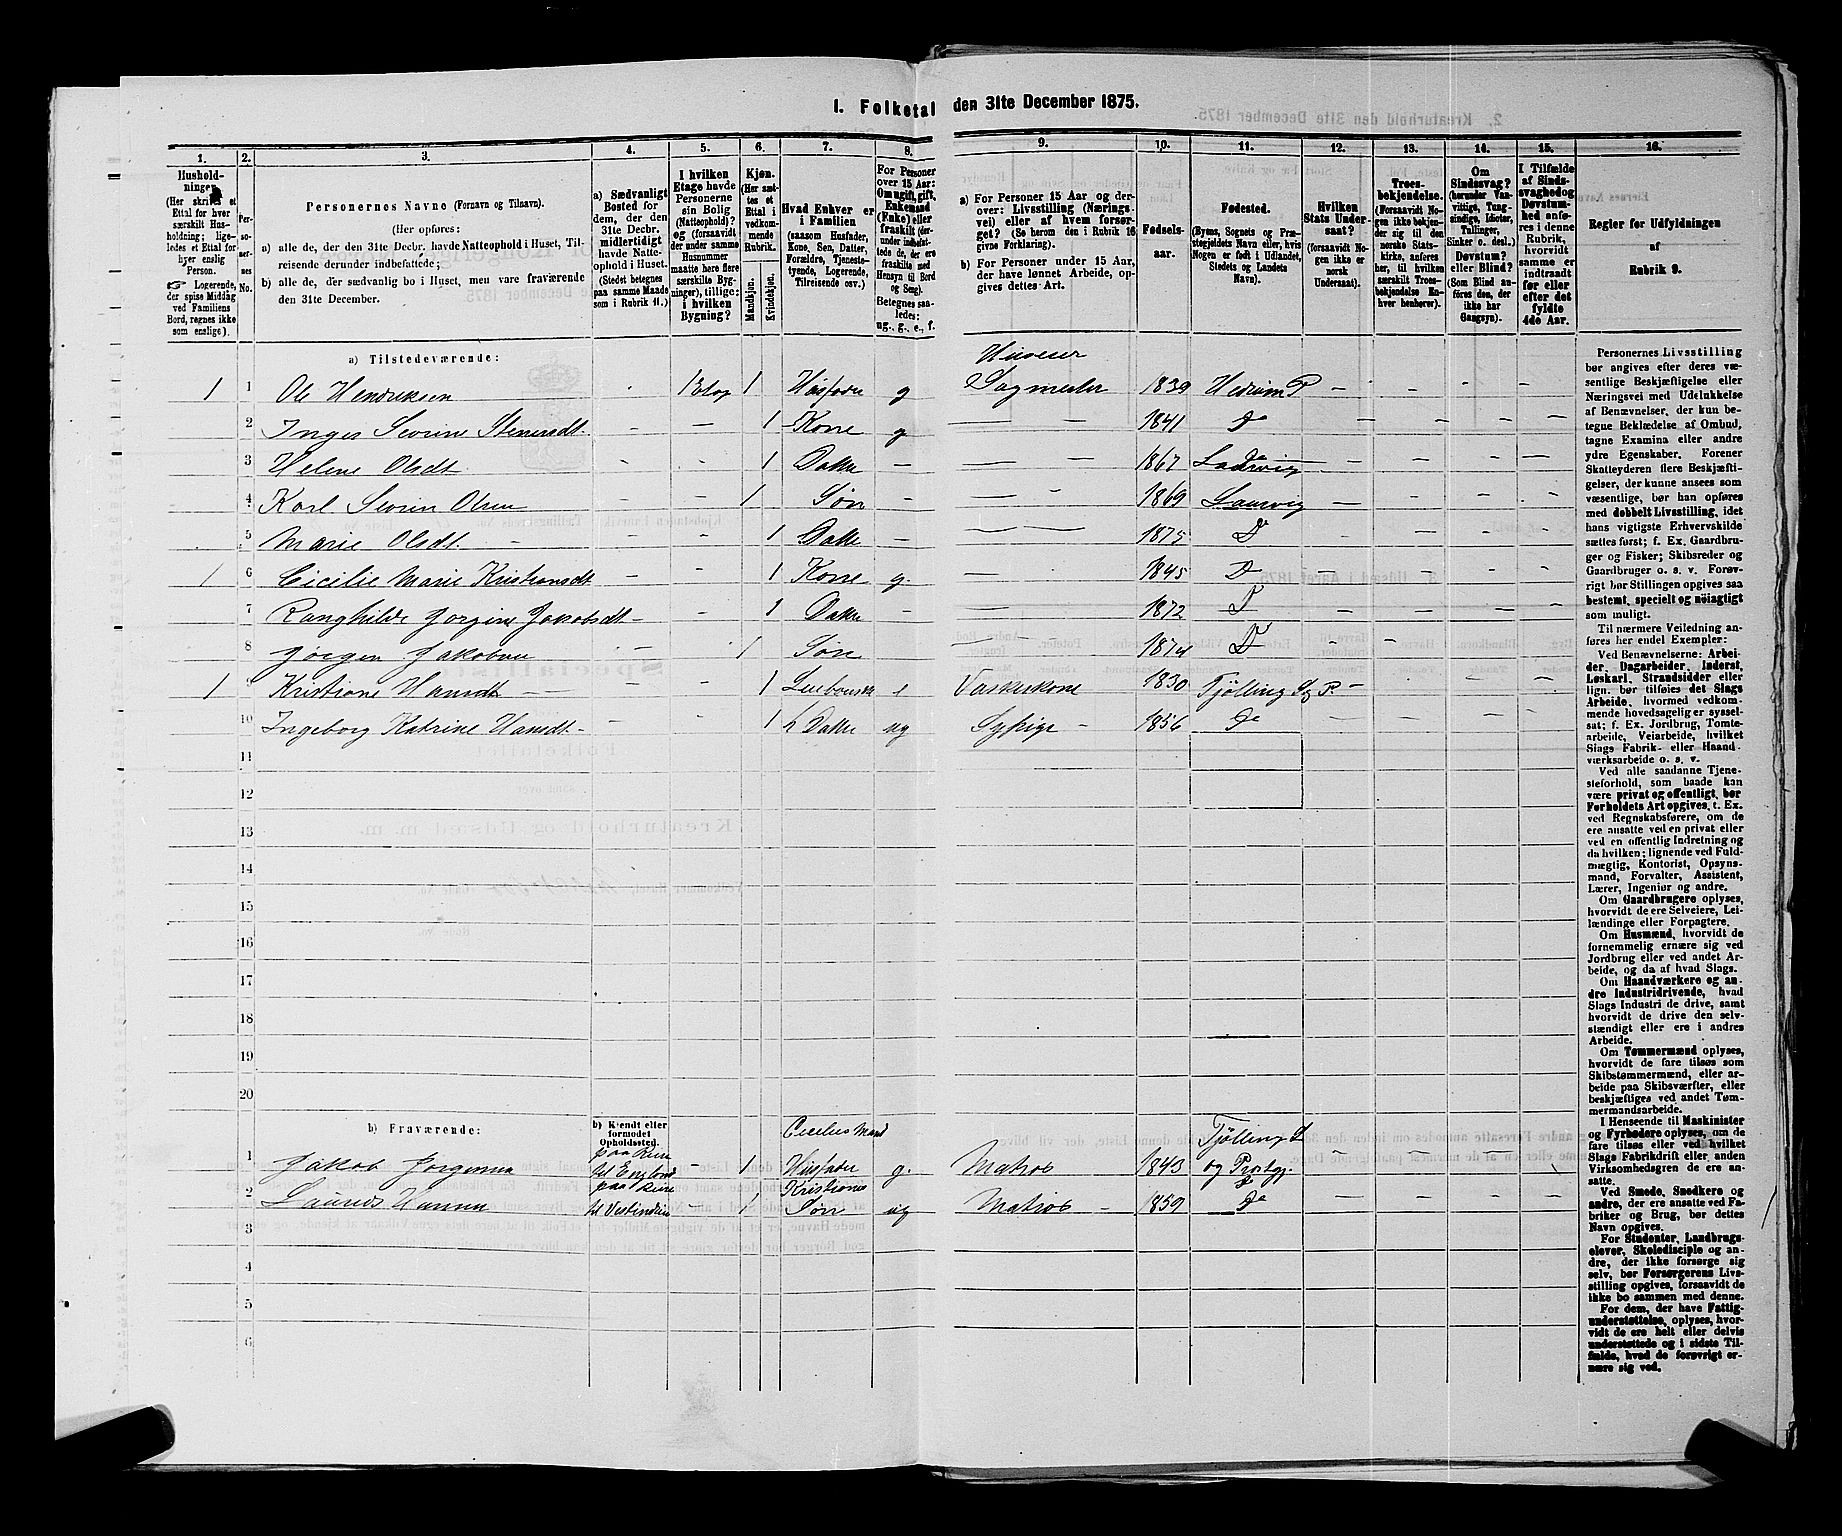 I. Folketal den 31te December 1875.
1. 2. 3. 4. 5. 6. 7. 8. 9. 10. 11. 12. 13. 14. 15. 16.
Husholdninger.
(Her skrives et
Ettal for hver
særskilt Husholdning; ligeledes et Ettal for
hver enslig
Person.
☞ Logerende,
der spise Middag
ved Familiens
Bord, regnes ikke
som enslige).
Personernes No.
Personernes Navne (Fornavn og Tilnavn).
(Her opføres:
a) alle de, der den 31te Decbr. havde Natteophold i Huset, Tilreisende derunder indbefattede;
b) alle de, der sædvanlig bo i Huset, men vare fraværende
den 31te December.
a) Sædvanligt
Bosted for
dem, der den
31te Decbr.
midlertidigt
havde Natteophold i Huset.
(Stedet betegnes
paa samme Maade
som i Rubrik 11.)
I hvilken
Etage havde
Personerne
sin Bolig
(Natteophold)?
(forsaavidt
der under samme
Husnummer
maatte være flere
særskilte Bygninger), tillige:
i hvilken
Bygning?
Kjøn.
(Her sættes et
Ettal i
vedkommende
Rubrik.
Mandkjøn.
Kvindekjøn.
Hvad Enhver er
i Familien
(saasom Husfader,
Kone, Søn, Datter,
Forældre, Tjenestetyende, Logerende,
Tilreisende osv.)
For Personer
over 15 Aar:
Om ugift, gift,
Enkemand
(Enke) eller
fraskilt (derunder indbefattede de, der ere
fraskilte med
Hensyn til Bord
og Seng).
Betegnes saaledes:
ug., g., e., f.
a) For Personer 15 Aar og derover: Livsstilling (Næringsvei) eller af hvem forsørget? (Se herom den i Rubrik 16
givne Forklaring).
b) For Personer under 15 Aar,
der have lønnet Arbeide, opgives dettes Art.
Fødselsaar.
Fødested.
(Byens, Sognets og Præstegjeldets Navn eller, hvis
Nogen er født i Udlandet,
Stedets og Landets
Navn).
Hvilken
Stats Undersaat?
(forsaavidt Nogen ikke er
norsk
Undersaat).
Troesbekjendelse.
(Forsaavidt Nogen ikke bekjender sig til den
norske Statskirke, anføres
her, til hvilken
særskilt Troesbekjendelse Enhver henhører).
Om
Sindssvag?
(herunder Vanvittige, Tungsindige, Idioter,
Tullinger,
Sinker o. desl.)
Døvstum?
eller Blind?
(Som Blind anføres den, der
ikke har
Gangsyn).
I Tilfælde
af Sindssvaghed og
Døvstumhed anføres i denne
Rubrik,
hvorvidt
samme er
indtraadt
før eller
efter det
fyldte
4de Aar.
Regler for Udfyldningen
af
Rubrik 9.
a) Tilstedeværende:
Huseier
1 1 Ole Henriksen 1 Etag 1 Husfader g Sagmester 1839 Hedrum P
2 Inger Severine Stenersdt. 1 Kone g 1841 Do
3 Helene Olsdt. 1 Datter 1867 Laurvig
4 Karl Severin Olsen 1 Søn 1869 Laurvig
5 Marie Olsdt. 1 Datter 1875 Do
1 6 Cicilie Marie Kristiansdt 1 Kone g. 1845 Do
7 Ranghilde Jorgine Jakobsdt 1 Datter 1872 Do
8 Jørgen Jakobsen 1 Søn 1874 Do
1 9 Kristiane Hansdt 1 e Vaskekone 1830 Tjølling S. g P.
10 Ingeborg Katrine Hansdt 1 Datter ug Sypige 1856 Do
11
12
13
14
15
16
17
18
19
20
b) Fraværende:
b) Kjendt eller
formodet
Opholdssted.
Cicilies Mand
Tjølling S
1 Jakob Jørgensen paa Reise til England 1 Husfader g. Matros 1843 og Prstgj.
2 Laurids Hansen paa Reise til Vestindien 1 Kristianes Søn ug Matros 1859 Do
3
4
5
6
Personernes Livsstilling
bør angives efter deres væsentlige Beskjæftigelse eller
Næringsvei med Udelukkelse
af Benævnelser, der kun betegne Bekledelse af Ombud,
tagne Examina eller andre
ydre Egenskaber. Forener
Skatteyderen flere Beskjæftigelser, der kunne ansees som
væsentlige, bør han opføres
med dobbelt Livsstilling, idet
hans vigtigste Erhvervskilde
sættes først; f. Ex. Gaardbruger og Fisker; Skibsreder og
Gaardbruger o. s. v. Forøvrigt bør Stillingen opgives saa
bestemt, specielt og nøiagtigt
som muligt.
Til nærmere Veiledning anføres her endel Exempler:
Ved Benævnelserne: Arbeider, Dagarbeider, Inderst,
Løskarl, Strandsidder eller
lign. bør tilføies det Slags
Arbeide, hvormed vedkommende hovedsagelig er sysselsat; f. Ex. Jordbrug, Tomtearbeide, Veiarbeide, hvilket
Slags Fabrik- eller Haandværksarbeide o. s. v.
Ved alle saadanne Tjenesteforhold, som baade kan
være privat og offentligt, bør
Forholdets Art opgives, t. Ex.
ved Regnskabsførere, om de
ere ansatte ved en privat eller
ved en offentlig Indretning og
da hvilken; lignende ved Fuldmægtig, Kontorist, Opsynsmand, Forvalter, Assistent,
Lærer, Ingeniør og andre.
Om Gaardbrugere oplyses,
hvorvidt de ere Selveiere, Leilændinge eller Forpagtere.
Om Husmænd, hvorvidt de
fornemmelig ernære sig ved
Jordbrug eller ved andet Arbeide, og da af hvad Slags.
Om Haandværkere og andre Industridrivende, hvad
Slags Industri de drive, samt
hvorvidt de drive den selvstændigt eller ere i andres
Arbeide.
Om Tømmermænd oplyses,
hvorvidt de fare tilsøs som
Skibstømmermænd, eller arbeide paa Skibsværfter, eller
beskjæftiges ved andet Tømmermandsarbeide.
I Henseende til Maskinister
og Fyrbødere oplyses, om de
fare tilsøs eller ved hvilket
Slags Fabrikdrift eller, anden
Virksomhed de ere ansatte.
Ved Smede, Snedkere og
andre, der ere ansatte ved Fabriker og Brug, bør dettes
Navn opgives.
For Studenter, Landbrugselever, Skoledisciple og andre, der ikke forsørge sig
selv, bør Forsørgerens Livsstilling opgives, forsaavidt de
ikke bo sammen med denne.
For dem, der have Fattigunderstøttelse, oplyses, hvorvidt de ere helt eller delvis
understøttede og i sidste Tilfælde, hvad de forøvrigt ernære sig ved.